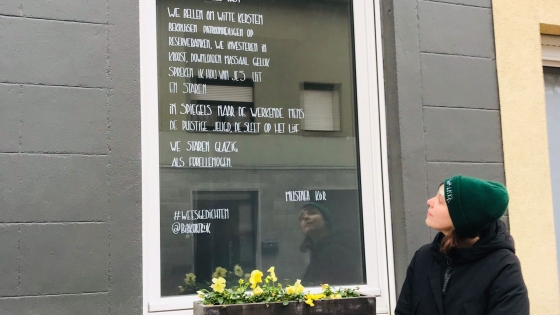 WE BELLEN OM WITTE KERSTEN
BEKRIJGEN PATROONHEILIGEN OP
RESERVEBANKEN, WE INVESTEREN IN
KROOST, DOWNLOADEN MASSAAL GELUK
SPREKEN IK HOU VAN JE'S UIT
EN STAREN
IN SPIEGELS MAAR DE WERKENDE MENS
DE PUISTIGE JEUGD, DE SLEET OP HET LIJF
WE STAREN GLAZIG
ALS FORELLENOGEN.
MUSTAFA KÖR
#WEESGEDICHTEN